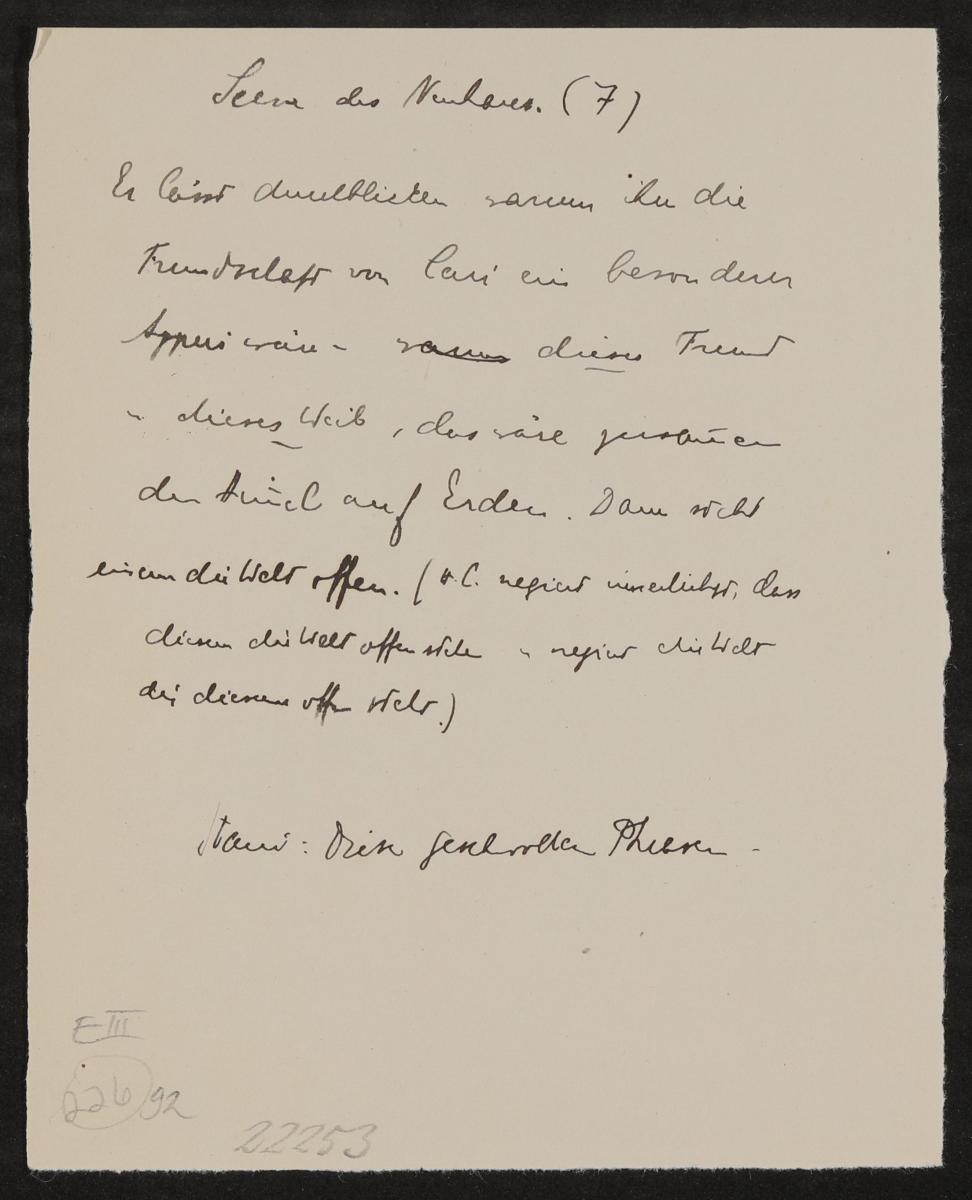 Scene des Neuhoff. (7)
Er lässt durchblicken warum ihn die
Freundschaft von Cari ein besonderer
Appui wäre – warum dieser Freund
u dieses Weib, das wäre zusammen
der Himmel auf Erden. Dann steht
einem die Welt offen. (H.C. negiert innerlichst, dass
diesem die Welt offen stehe u negiert die Welt
die diesem offen steht.)
Stani: Diese geschwollenen Phrasen –
E III
226 92
22253